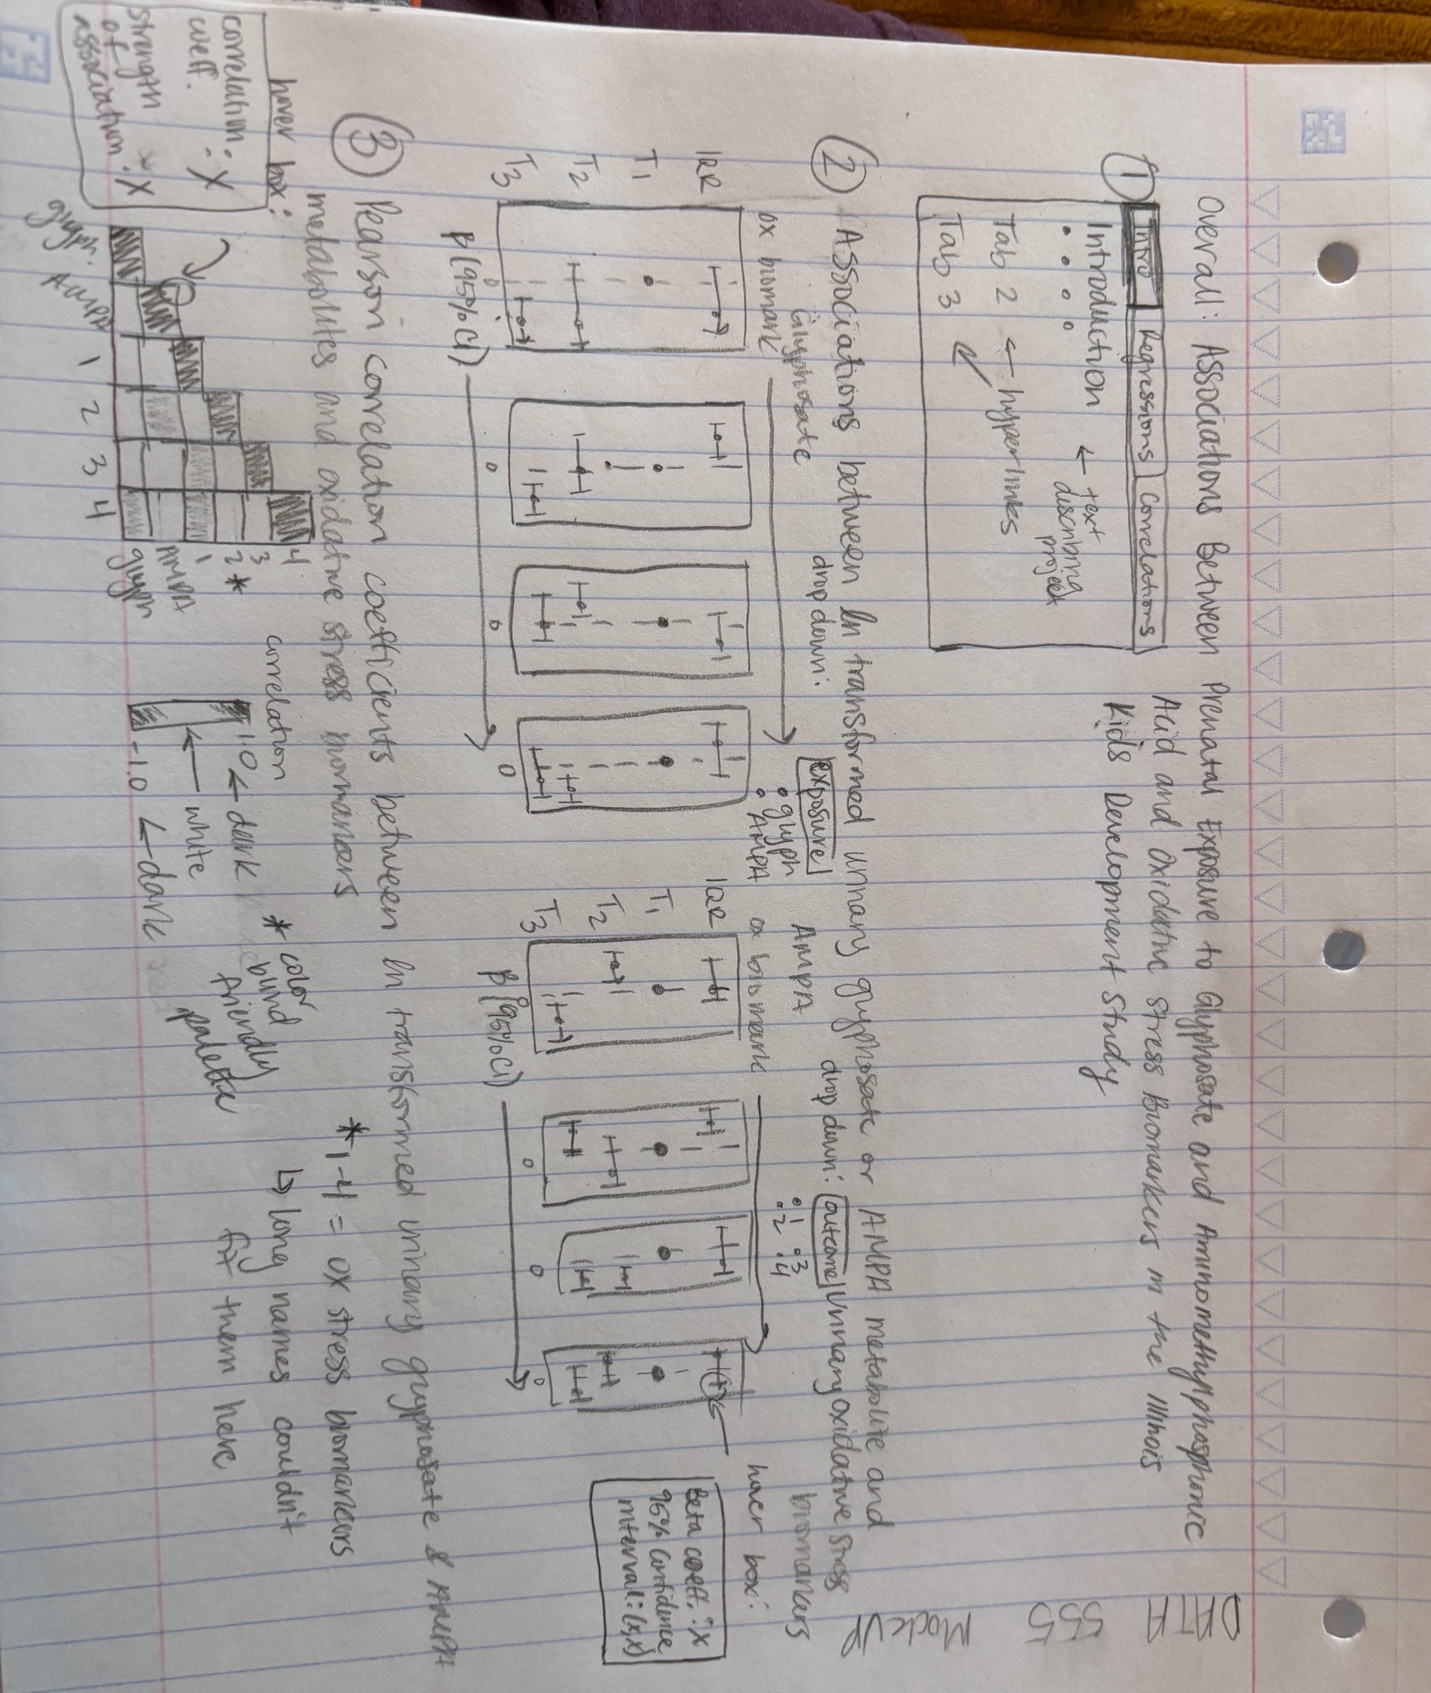 DATA 555 MockUP
Overall: Associations Between Prenatal Exposure to Glyphosate and Aminomethylphosphonic
Acid and Oxidative Stress Biomarkers in the Illinois
Kids Development Study
① Intro Regressions Correlations
Introduction ← text describing project
Tab 2 ← hyperlinks
Tab 3
② Associations between ln transformed urinary glyphosate or AMPA metabolite and
urinary oxidative stress
biomarkers
drop down: exposure
• glyph
• AMPA
drop down: outcome
• 1 • 3
• 2 • 4
Glyphosate
ox biomark
IQR
T1
T2
T3
0 0 0 0
β (95% CI)
AMPA
ox biomark
IQR
T1
T2
T3
0 0 0 0
β (95% CI)
hover box:
Beta coeff.: X
95% confidence
interval: (x,x)
③ Pearson correlation coefficients between ln transformed urinary glyphosate & AMPA
metabolites and oxidative stress biomarkers
hover box:
correlation
coeff. : X
strength
of
association: X
4
3
2 *
1
AMPA
glyph
glyph. AMPA 1 2 3 4
correlation
1.0 ← dark
← white
-1.0 ← dark
* color
blind
friendly
palette
* 1-4 = ox stress biomarkers
↳ long names couldn't
fit them here